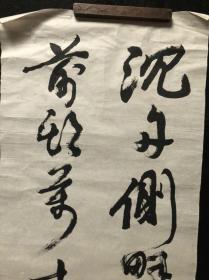 沉舟側畔
前頭萬木